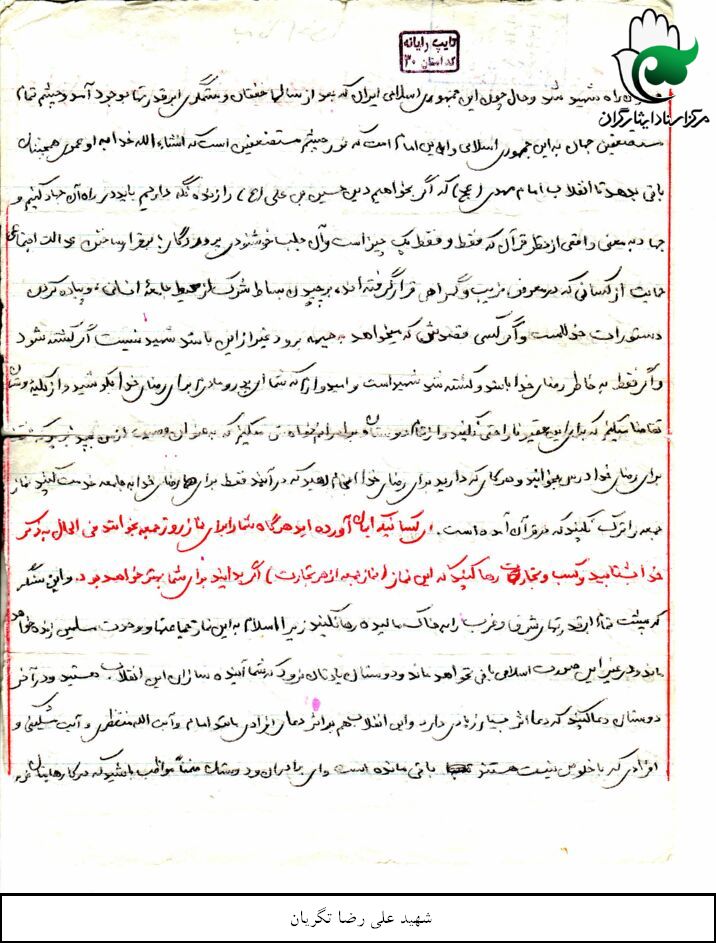 تایپ رایانه
کد استان ۳۰
مرکز اسناد ایثارگران
راه شهید شد و حال چون این جمهوری اسلامی ایران که بعد از سالها خفقان و ستمگری ابرقدرتها بوجود آمد و چشم تمام
مستضعفین جهان به این جمهوری اسلامی و این امام است که نور چشم مستضعفین است که انشاء الله خدا به او عمری همچنان
باقی بدهد تا انقلاب امام مهدی (عج) که اگر بخواهیم دین حسین بن علی (ع) را زنده نگه داریم باید در راه آن جهاد کنیم و
جهاد به معنی واقعی از نظر قرآن که فقط و فقط یک چیز است و آن جلب خوشنودی پروردگار با برقرار ساختن عدالت اجتماعی
حمایت از کسانی که در معرض فریب و گمراهی قرار گرفته اند، برچیدن بساط شرک از محیط جامعه انسانی، و پیاده کردن
دستورات خداست و اگر کسی قصدش که میخواهد به جبهه برود غیر از این باشد شهید نیست اگر کشته شود
و اگر فقط به خاطر رضای خدا باشد و کشته شد شهید است و امیدوارم که شما ای پدر و مادرم برای رضای خدا بکوشید و از کلیه
تقاضا میکنم که برای این حقیر ناراحتی نکنید و از تمام دوستان و برادرانم خواهش میکنم که به عنوان وصیت از من بپذیرید که
برای رضای خدا درس بخوانید و هر کاری که دارید برای رضای خدا انجام دهید که در آینده فقط برای رضای خدا به جامعه خدمت کنید نماز
جمعه را ترک نکنید که در قرآن آمده است. ای کسانیکه ایمان آورده اید هرگاه شما را برای نماز روز جمعه بخوانند فی الحال به ذکر
خدا بشتابید و کسب و تجارت رها کنید که این نماز (نماز جمعه از هر تجارت) اگر بدانید برای شما بهتر خواهد بود. و این سنگر
که پشت تمام ابرقدرتهای شرق و غرب را به خاک مالیده رها نکنید زیرا اسلام به این نماز جماعتها و وحدت مسلمین زنده خواهد
ماند و در غیر این صورت اسلامی باقی نخواهد ماند و دوستان یادتان نرود که شما آینده سازان این انقلاب هستید و در آخر
دوستان دعا کنید که دعا اثر بسیار زیادی دارد و این انقلاب هم بر اثر دعای افرادی مانند امام و آیت الله منتظری و آیت مشکینی و
افرادی که با خلوص نیت هستند باقی مانده است و ای برادران و دوستان ضمناً مواظب باشید که در کارهایتان
شهید علی رضا تگریان